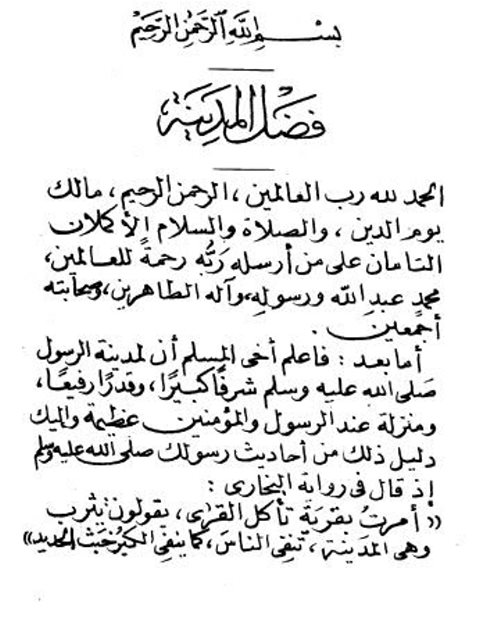 بسم الله الرحمن الرحيم
فضل المدينة
الحمد لله رب العالمين ، الرحمن الرحيم ، مالك
يوم الدين ، والصلاة والسلام الأكملان
التامان على من أرسله رَبُّه رحمةً للعالمين،
محمدٍ عبدِ الله ورسولِهِ، وآله الطاهرين، وصحابته
أجمعين .
أما بعد : فاعلم أخى المسلم أن لمدينة الرسول
صَلى الله عليه وسلم شرفًا كبيرًا، وقدرًا رفيعًا،
ومنزلة عند الرسول والمؤمنين عظيمة وإليك
دليل ذلك من أحاديث رسولك صلى الله عليه وسلم
إذ قال فى رواية البخارى :
« أمرتُ بقريَة تأكل القرَى ، يقولون يثرب
وهى المدَينة ، تنفِى الناسَ ، كما ينفِى الكيرُ خبَثَ الحديد »